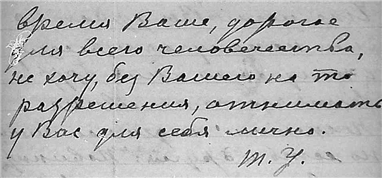 время Ваше, дорогое
для всего человечества,
не хочу, без Вашего на то
разрешения, отнимать
у Вас для себя лично.
Т. У.